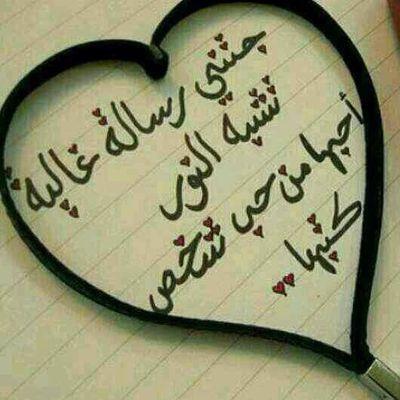 جتني رسالة غالية
تشبه النور
أحبها من حب شخص
كتبها ..